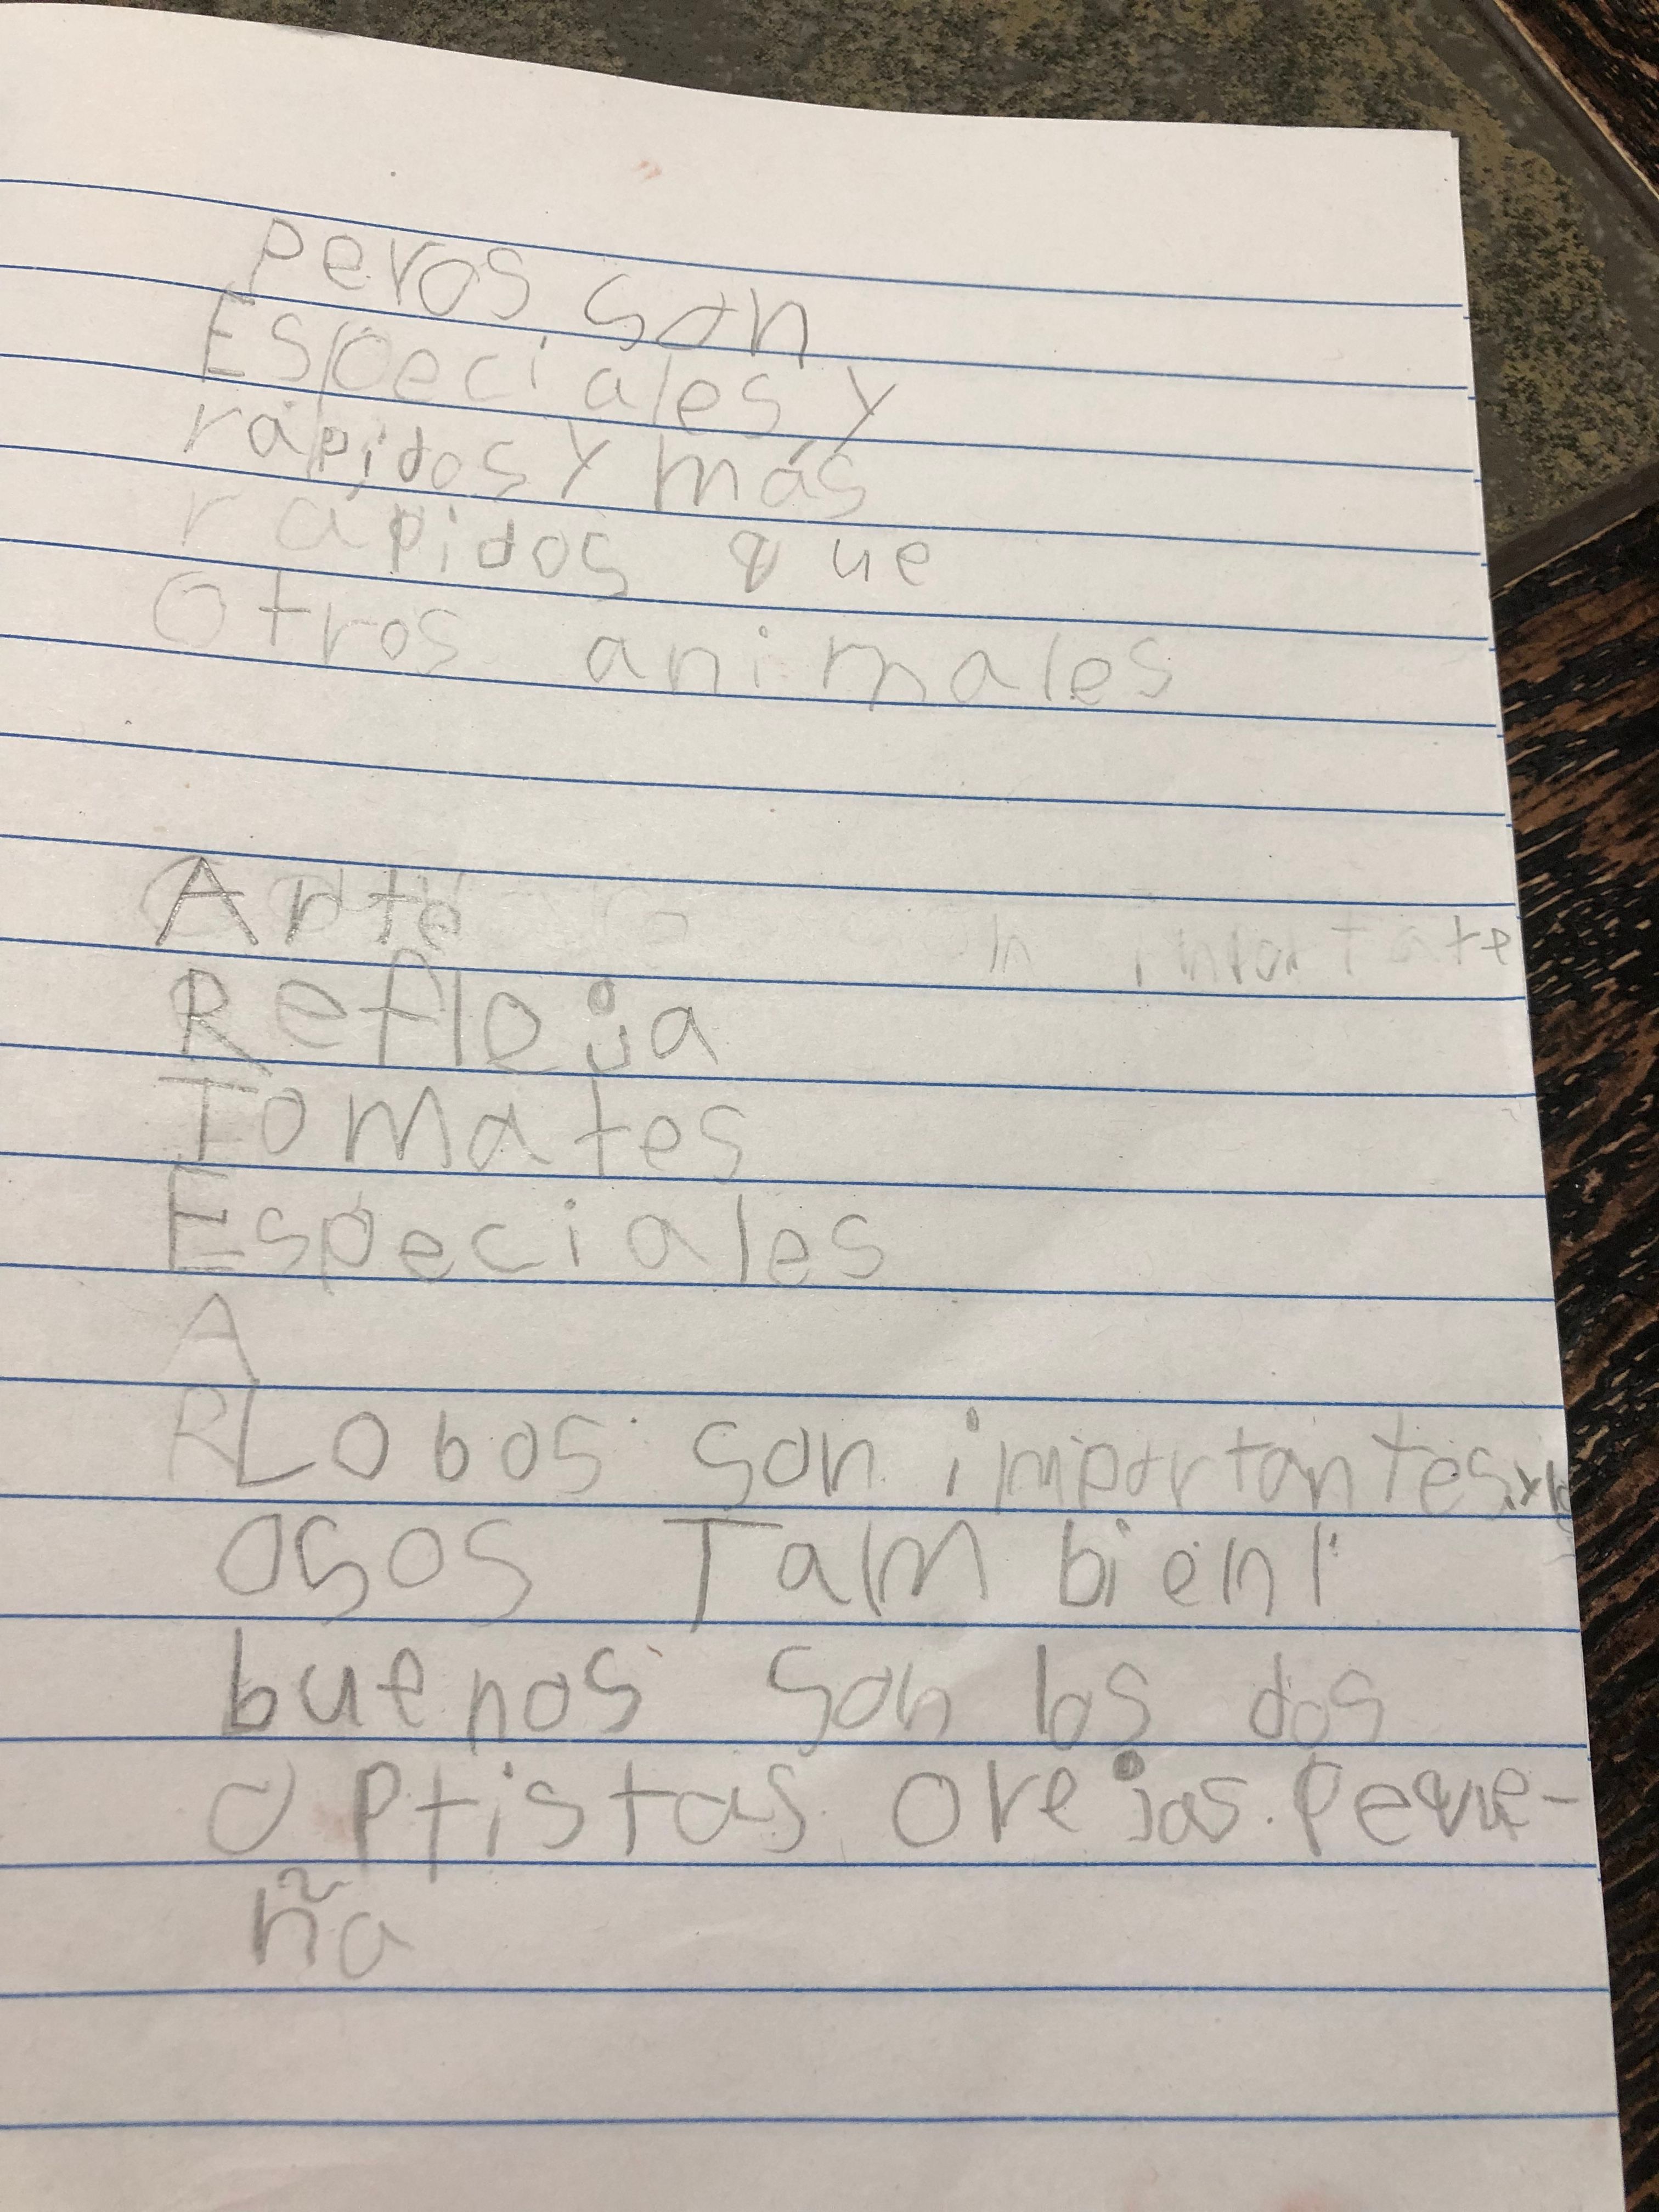 peros son
Especiales y
rápidos y más
rápidos que
Otros animales
Arte
Refleja
Tomates
Especiales
A
R
Lobos son importantes, y
osos Tam bien
buenos son los dos
optistas orejas. Peque-
ña